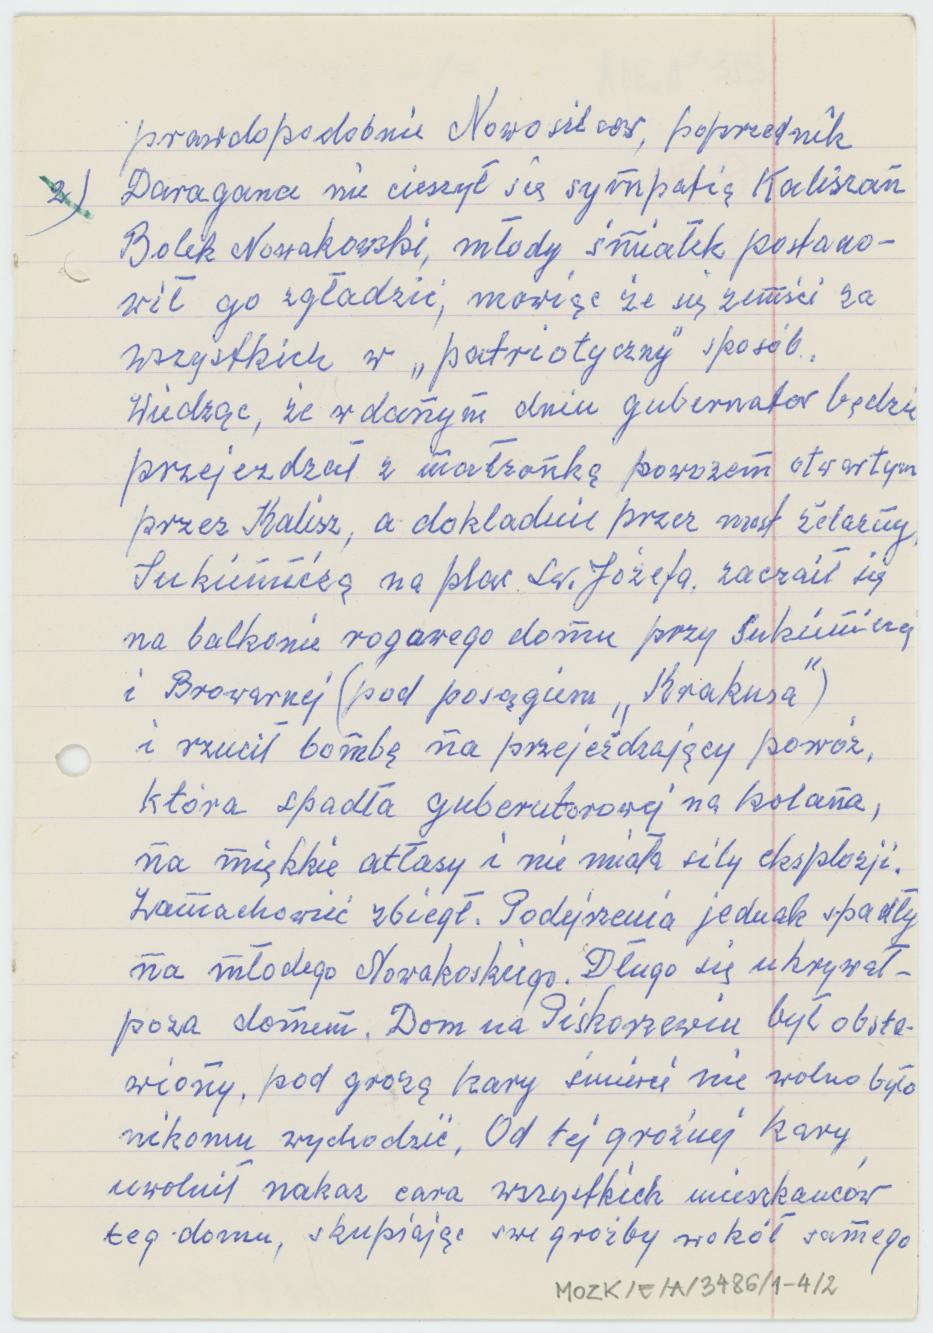 prawdopodobnie Nowosilcow, poprzednik
2) Daragana nie cieszył się sympatią Kaliszan
Bolek Nowakowski, młody śmiałek postano-
wił go zgładzić, mowiąc że się zemści za
wszystkich w „patriotyczny" sposób.
Wiedząc, że w danym dniu gubernator będzie
przejezdzał z małżonką powozem otwartym
przez Kalisz, a dokladnie przez most żelazny,
Sukienniczą na plac Św. Józefa. zaczaił się
na balkonie rogawego domu przy Sukienniczej
i Browarnej (pod posągiem „Krakusa")
i rzucił bombę na przejeżdzający powóz,
która spadła gubernatorowej na kolana,
na miękkie atłasy i nie miała siły eksplozji.
Zamachowiec zbiegł. Podejrzenia jednak spadły
na młodego Nowakoskiego. Długo się ukrywał-
poza domem. Dom na Piskorzewiu był obsta-
wiony, pod grozą kary śmierci nie wolno było
nikomu wychodzić, Od tej groźnej kary,
uwolnił nakaz cara wszystkich mieszkańców
teg domu, skupiając swe groźby wokół samego
MOZK/E/A/3486/1-4/2